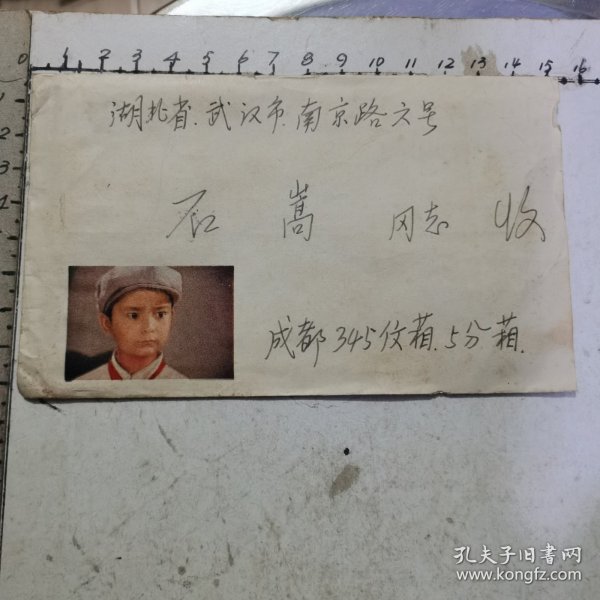 0 1 2 3 4 5 6 7 8 9 10 11 12 13 14 15 16
湖北省武汉市南京路六号
石嵩 同志 收
成都345信箱.5分箱.
孔夫子旧書网
www.kongfz.com